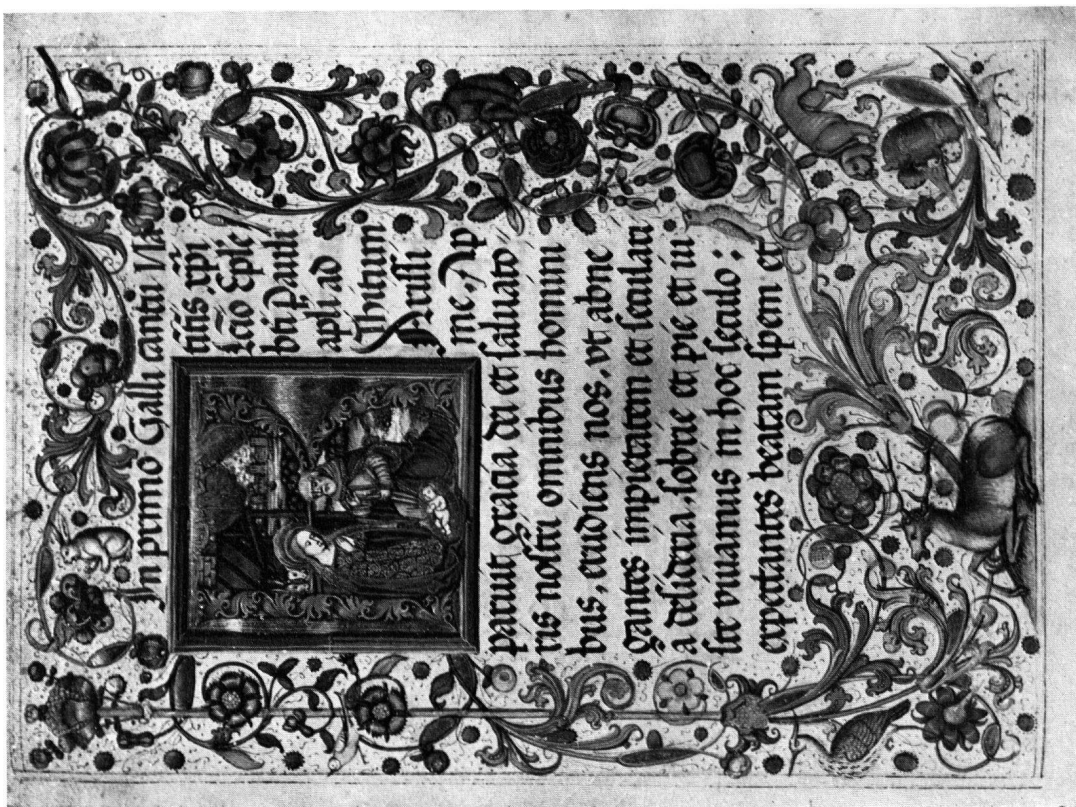 In primo Galli cantu Na
titis xpi
lectio Eple
bti Pauli
apli ad
Thitum
Arissi
me. Ap
paruit gracia dei et saluato
ris nostri omnibus homini
bus, erudiens nos, vt abne
gantes impietatem et secularia
a desideria, sobrie et pie et iu
ste viuamus in hoc seculo:
expectantes beatam spem et